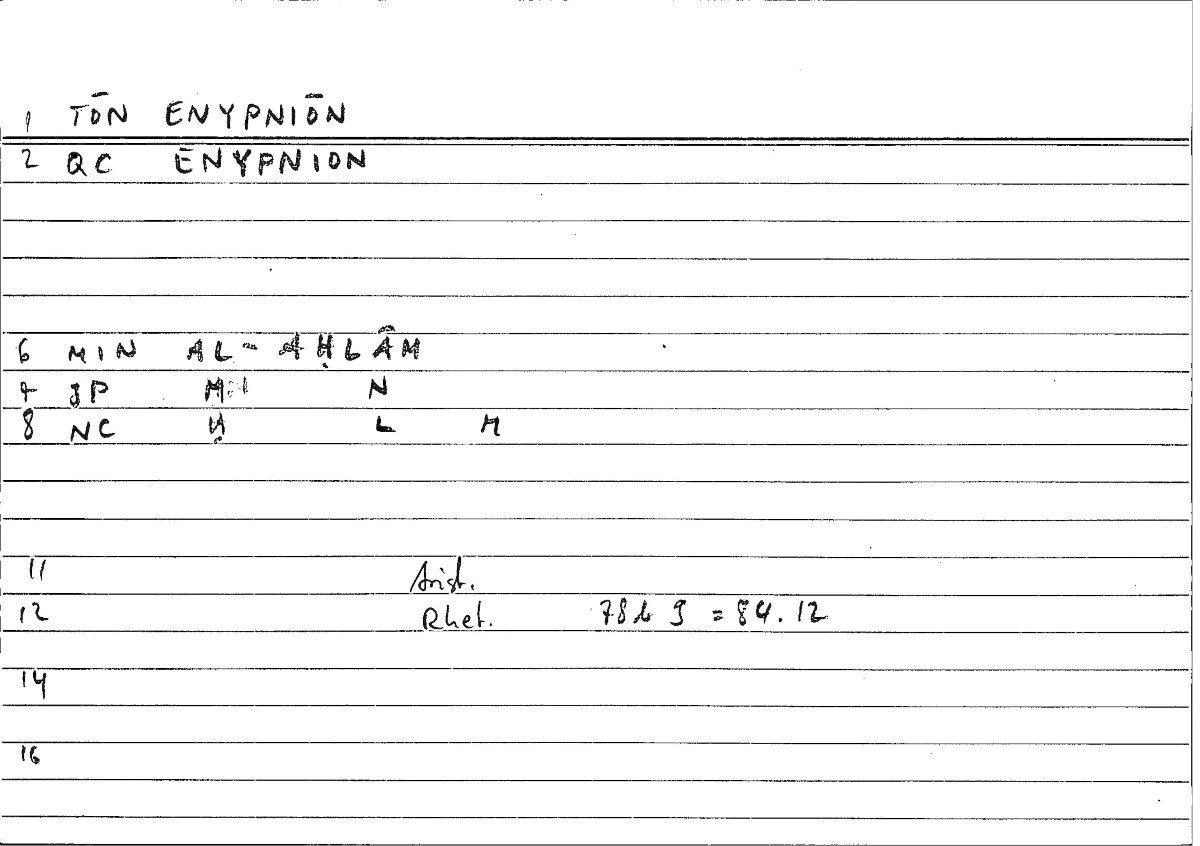 1 TŌN ENYPNIŌN
2 QC ENYPNION
6 MIN AL-AḤLÂM
7 JP M N
8 NC Ḥ L M
11 Arist.
12 Rhet. 78b 9 = 84.12
14
16